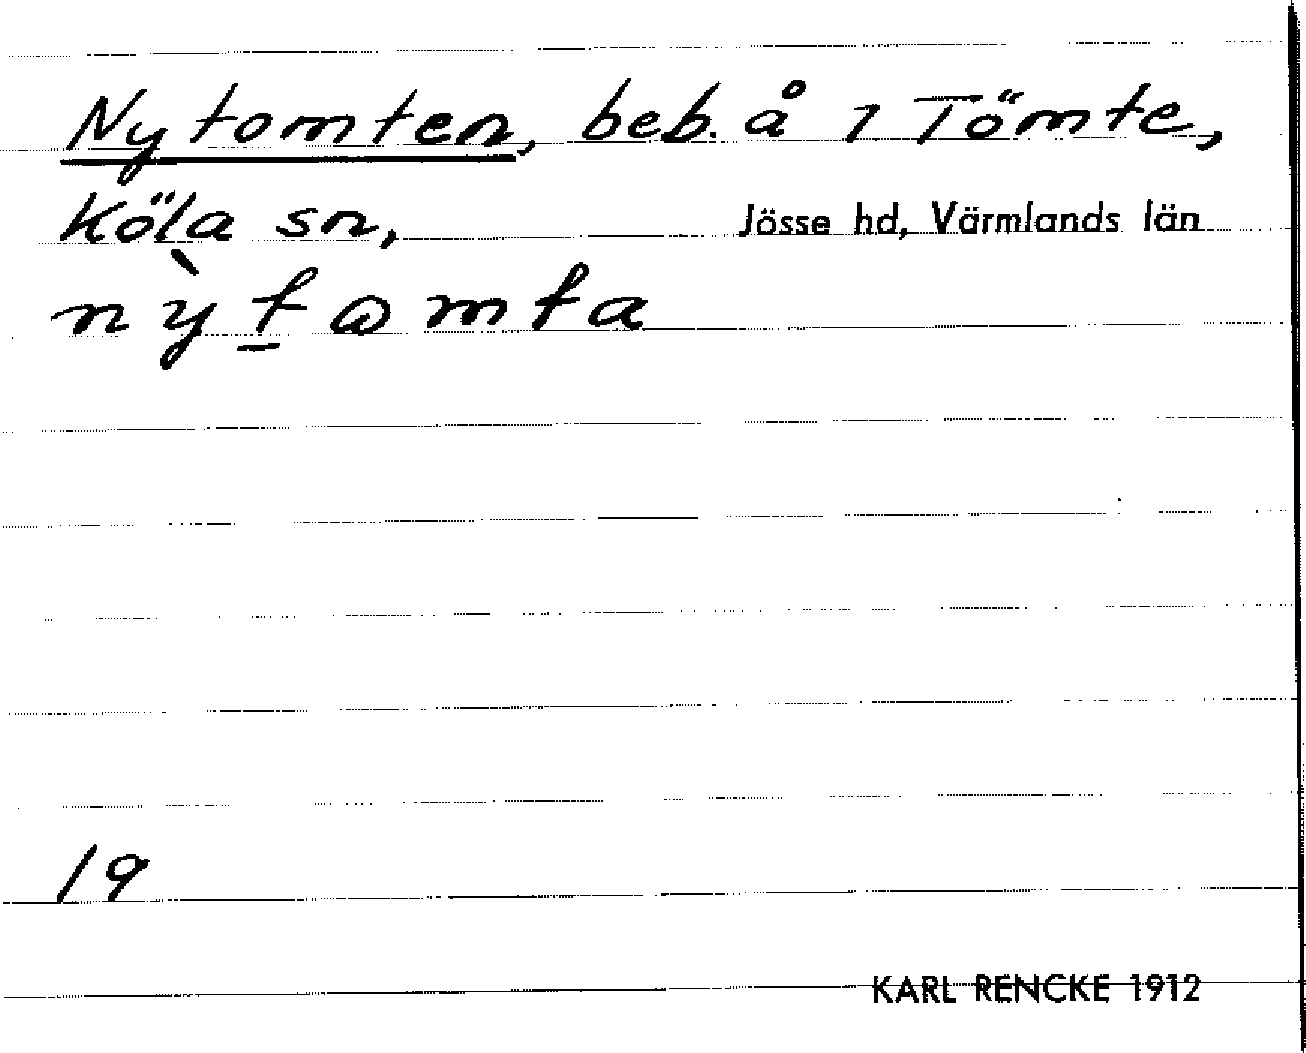 Nytomten, beb. å 1 Tömte,
Köla sn, Jösse hd, Värmlands län
nỳt̲ωmta
19
KARL RENCKE 1912